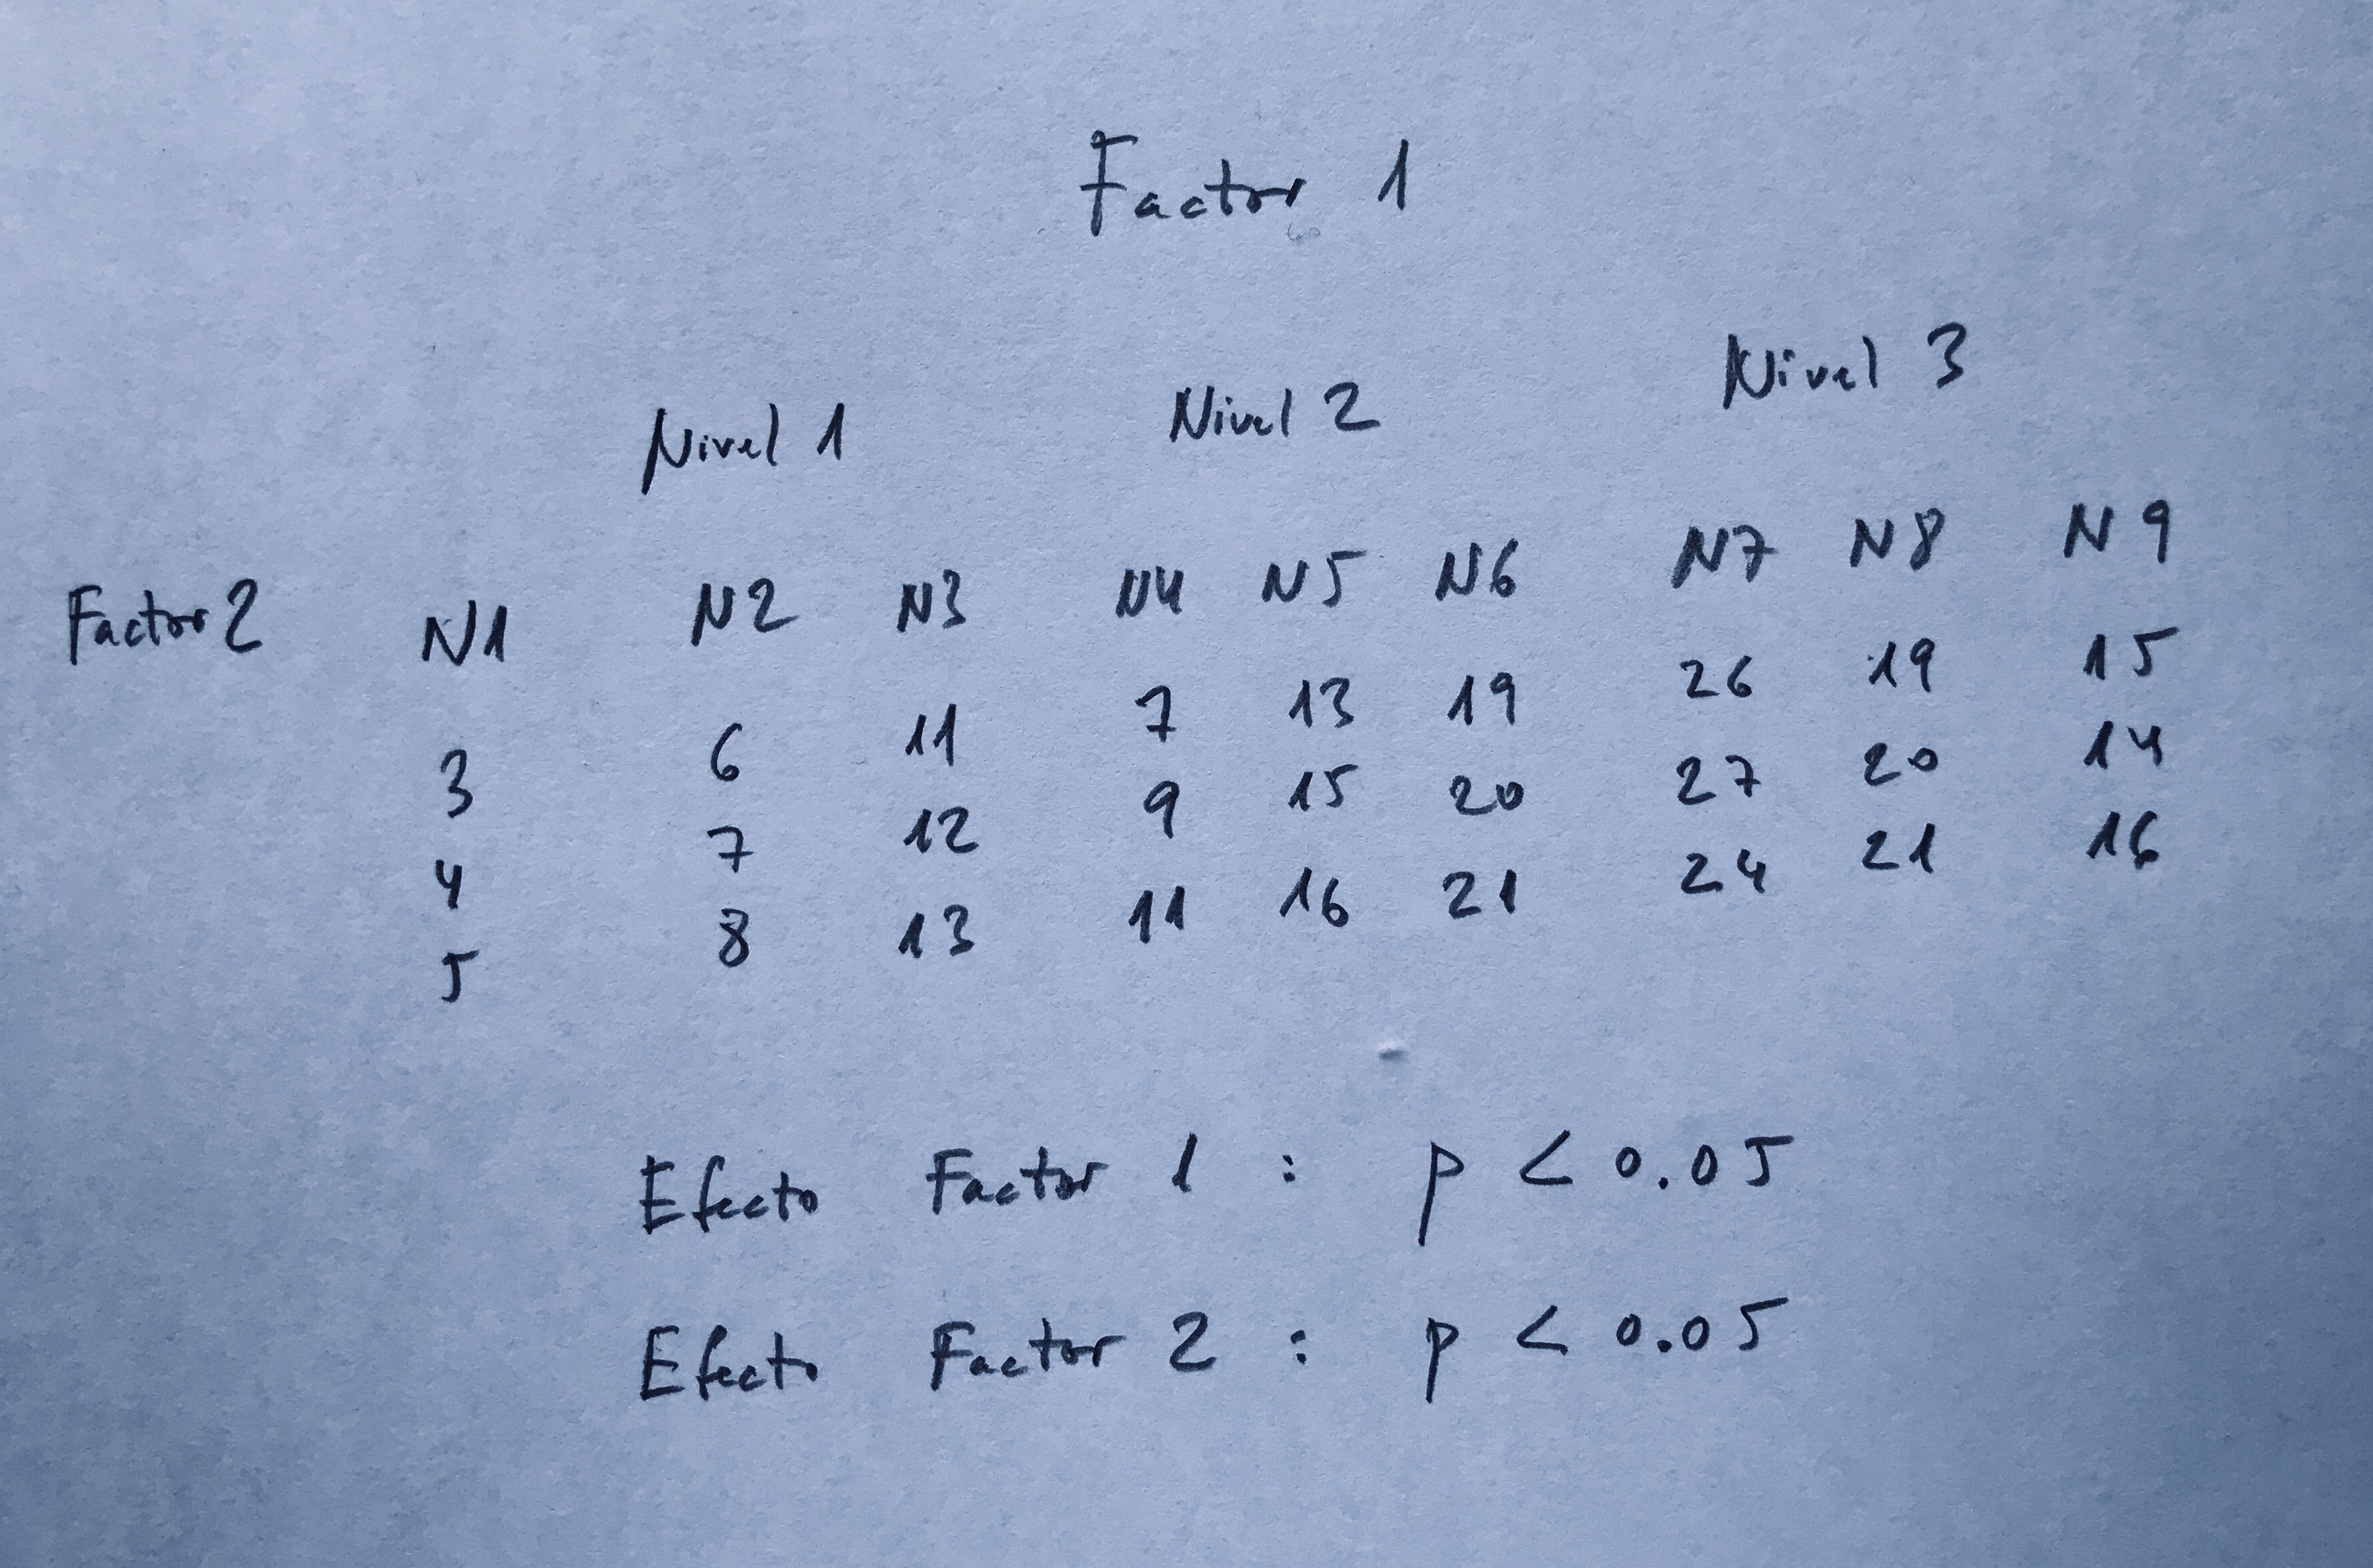 Factor 1
Nivel 1 Nivel 2 Nivel 3
Factor 2 N1 N2 N3 N4 N5 N6 N7 N8 N9
3 6 11 7 13 19 26 19 15
4 7 12 9 15 20 27 20 14
5 8 13 11 16 21 24 21 16
Efecto Factor 1 : p < 0.05
Efecto Factor 2 : p < 0.05